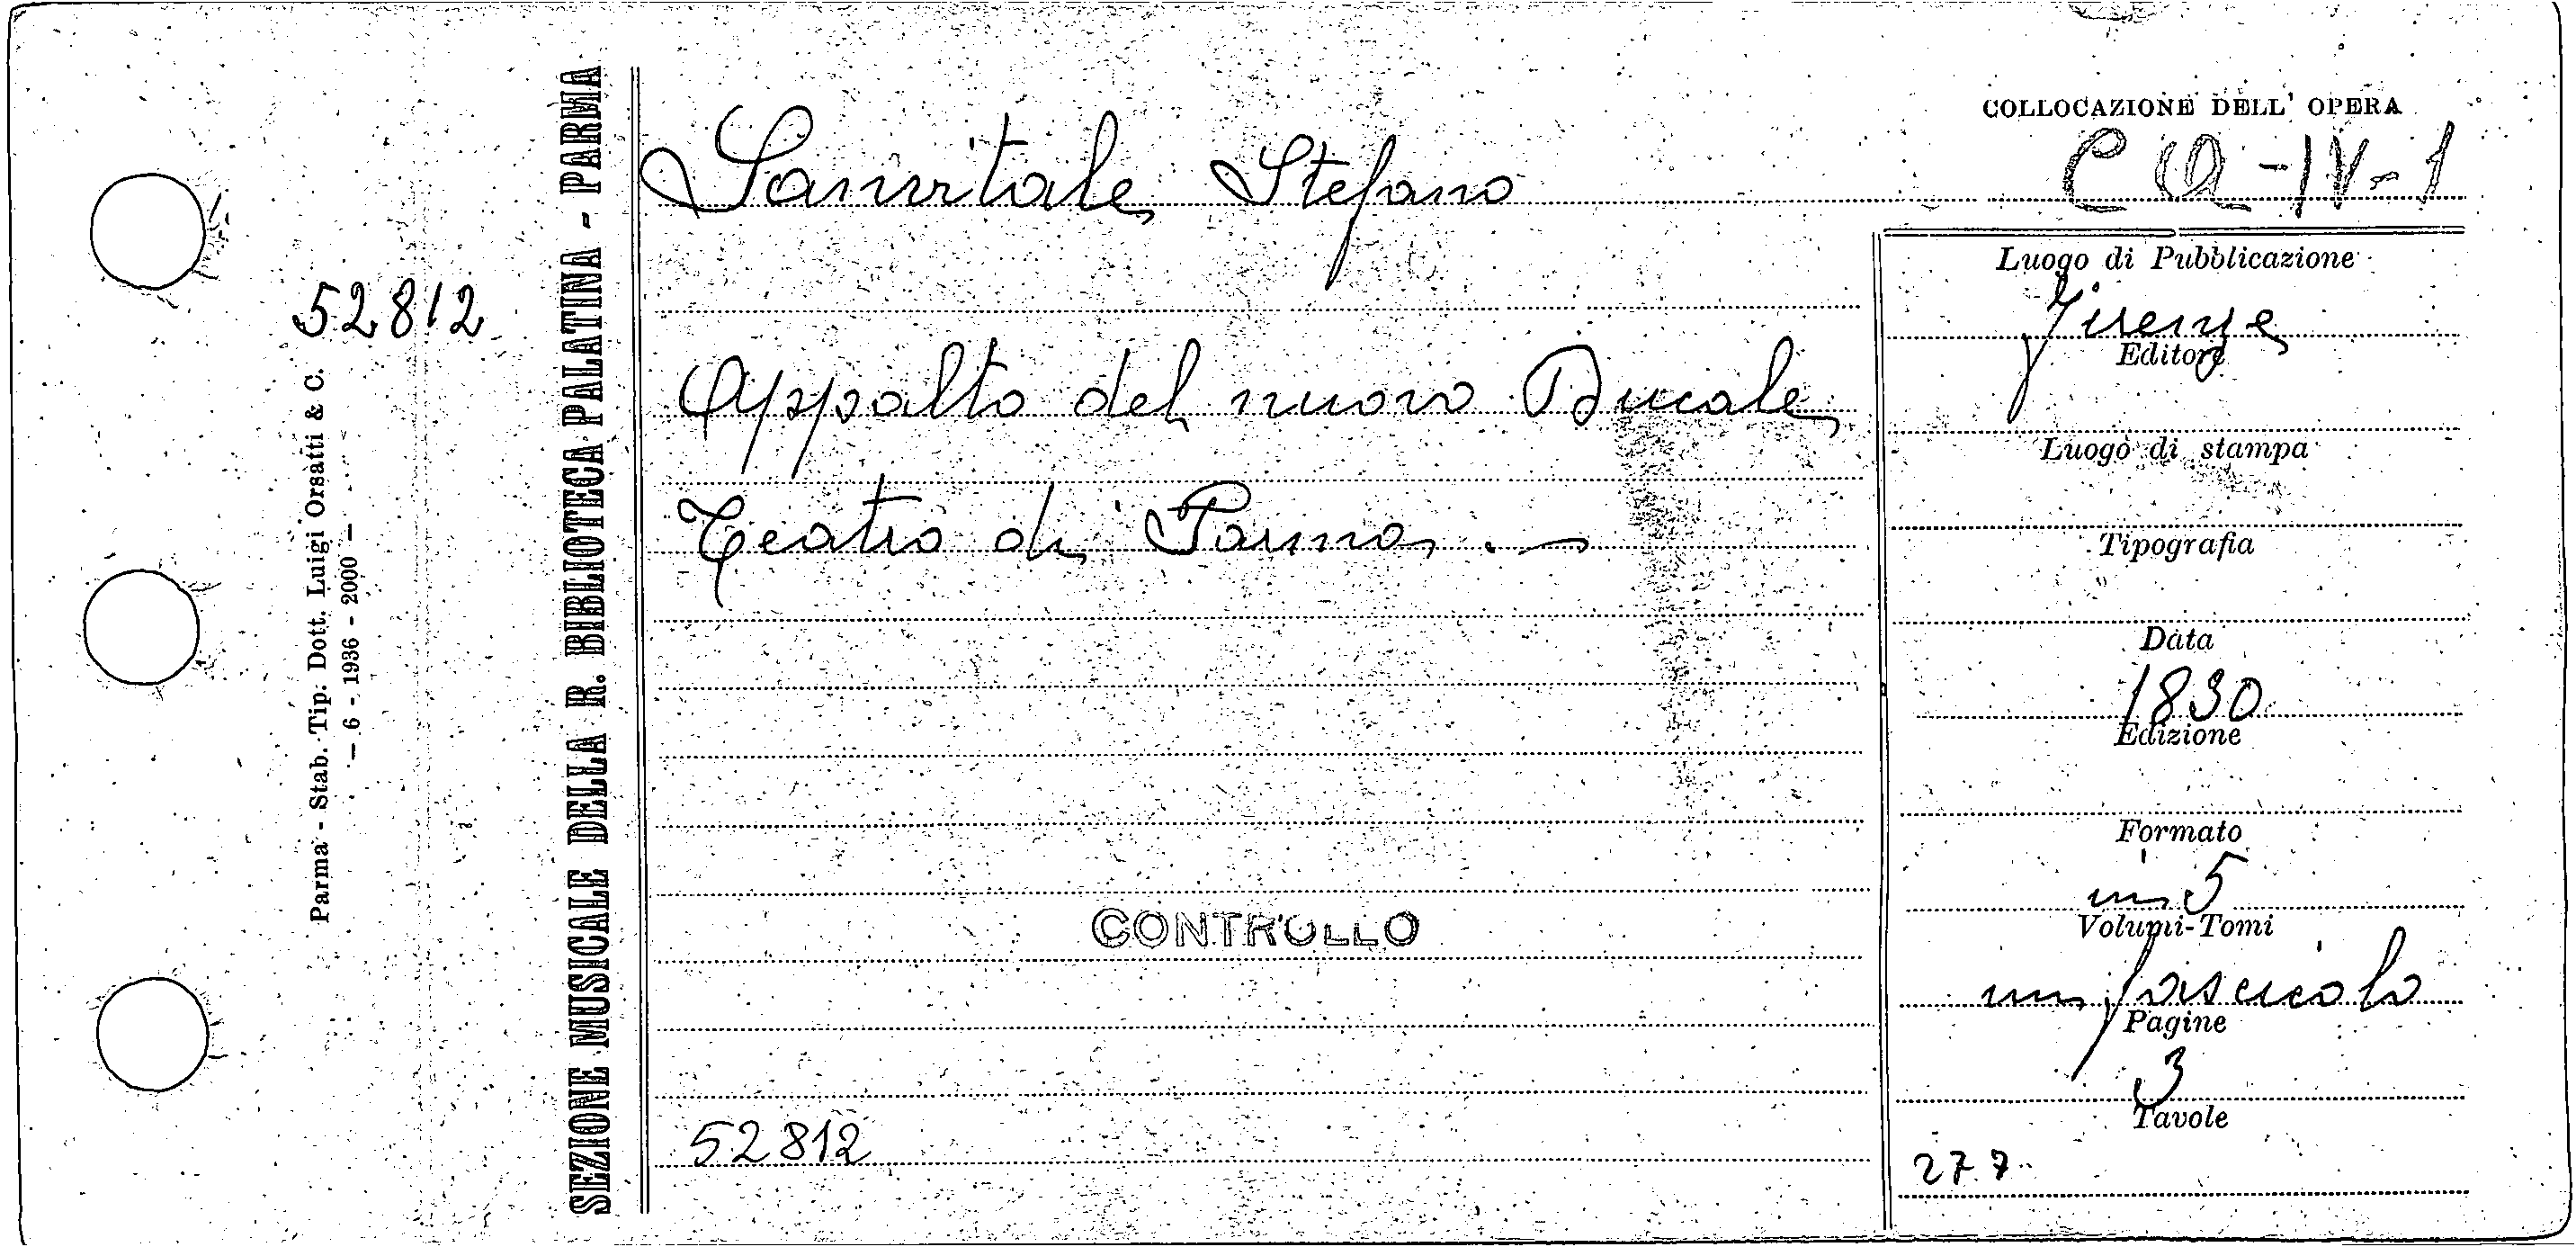 COLLOCAZIONE DELL' OPERA
CQ-IV-1
Sanvitale Stefano
Appalto del nuovo Ducale
Teatro di Parma. —
CONTROLLO
52812
Luogo di Pubblicazione
Firenze
Editore
Luogo di stampa
Tipografia
Data
1830
Edizione
Formato
in 5
Volumi-Tomi
un fascicolo
Pagine
3
Tavole
277
52812
Parma - Stab. Tip. Dott. Luigi Orsatti & C.
— 6 - 1936 - 2000 —
SEZIONE MUSICALE DELLA R. BIBLIOTECA PALATINA - PARMA